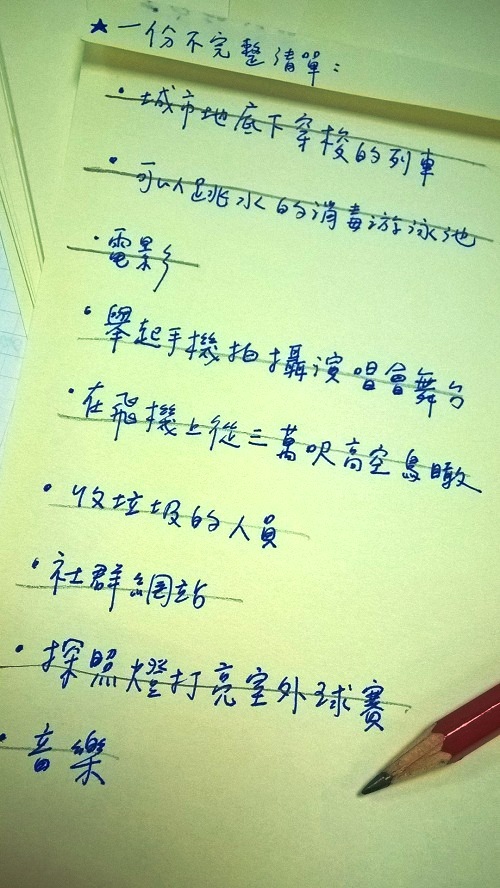 ★一份不完整清單：
・城市地底下穿梭的列車
・可以跳水的消毒游泳池
・電影
・舉起手機拍攝演唱會舞台
・在飛機上從三萬呎高空鳥瞰
・收垃圾的人員
・社群網站
・探照燈打亮室外球賽
・音樂